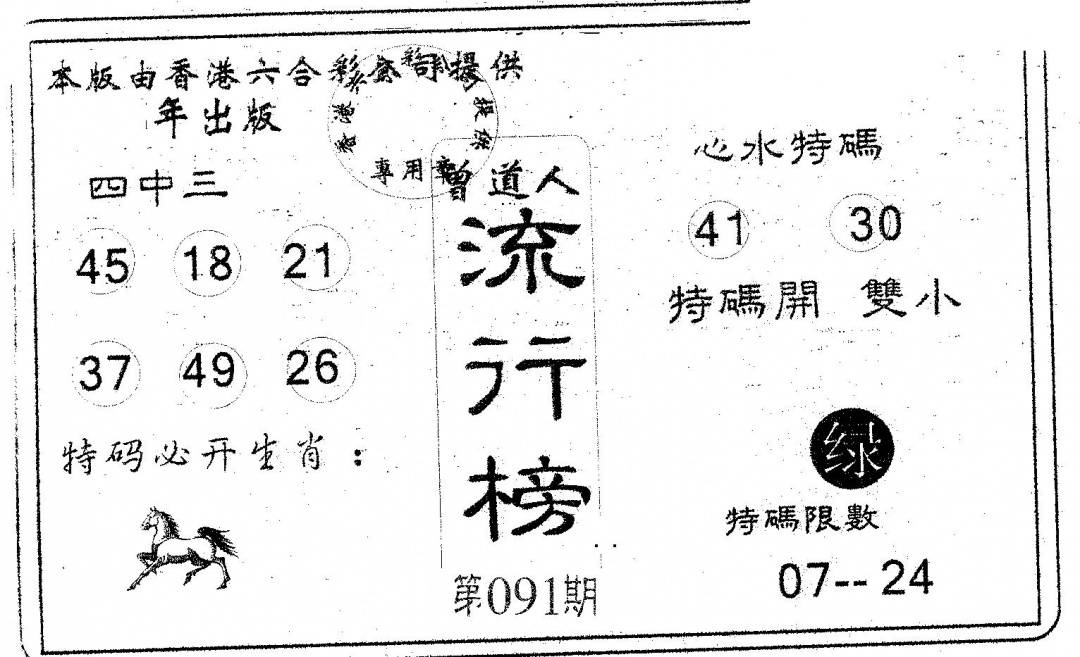 本版由香港六合彩公司提供
年出版
專用章
四中三
45 18 21
37 49 26
特码必开生肖：
曾道人
流
行
榜
第091期
心水特碼
41 30
特碼開 雙小
绿
特碼限數
07--24